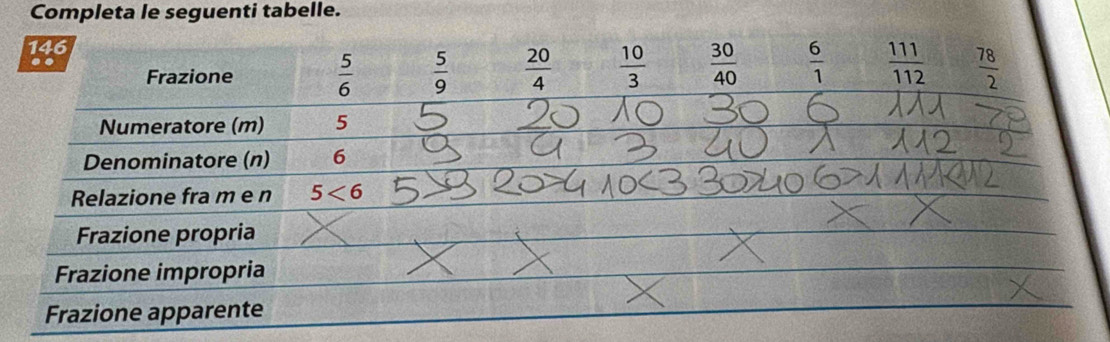 Completa le seguenti tabelle.
146
Frazione 5/6 5/9 20/4 10/3 30/40 6/1 111/112 78/2
Numeratore (m) 5 5 20 10 30 6 111 78
Denominatore (n) 6 9 4 3 40 1 112 2
Relazione fra m e n 5<6 5>9 20>4 10<3 30>40 6>1 111<112
Frazione propria X X X
Frazione impropria X X X
Frazione apparente X X